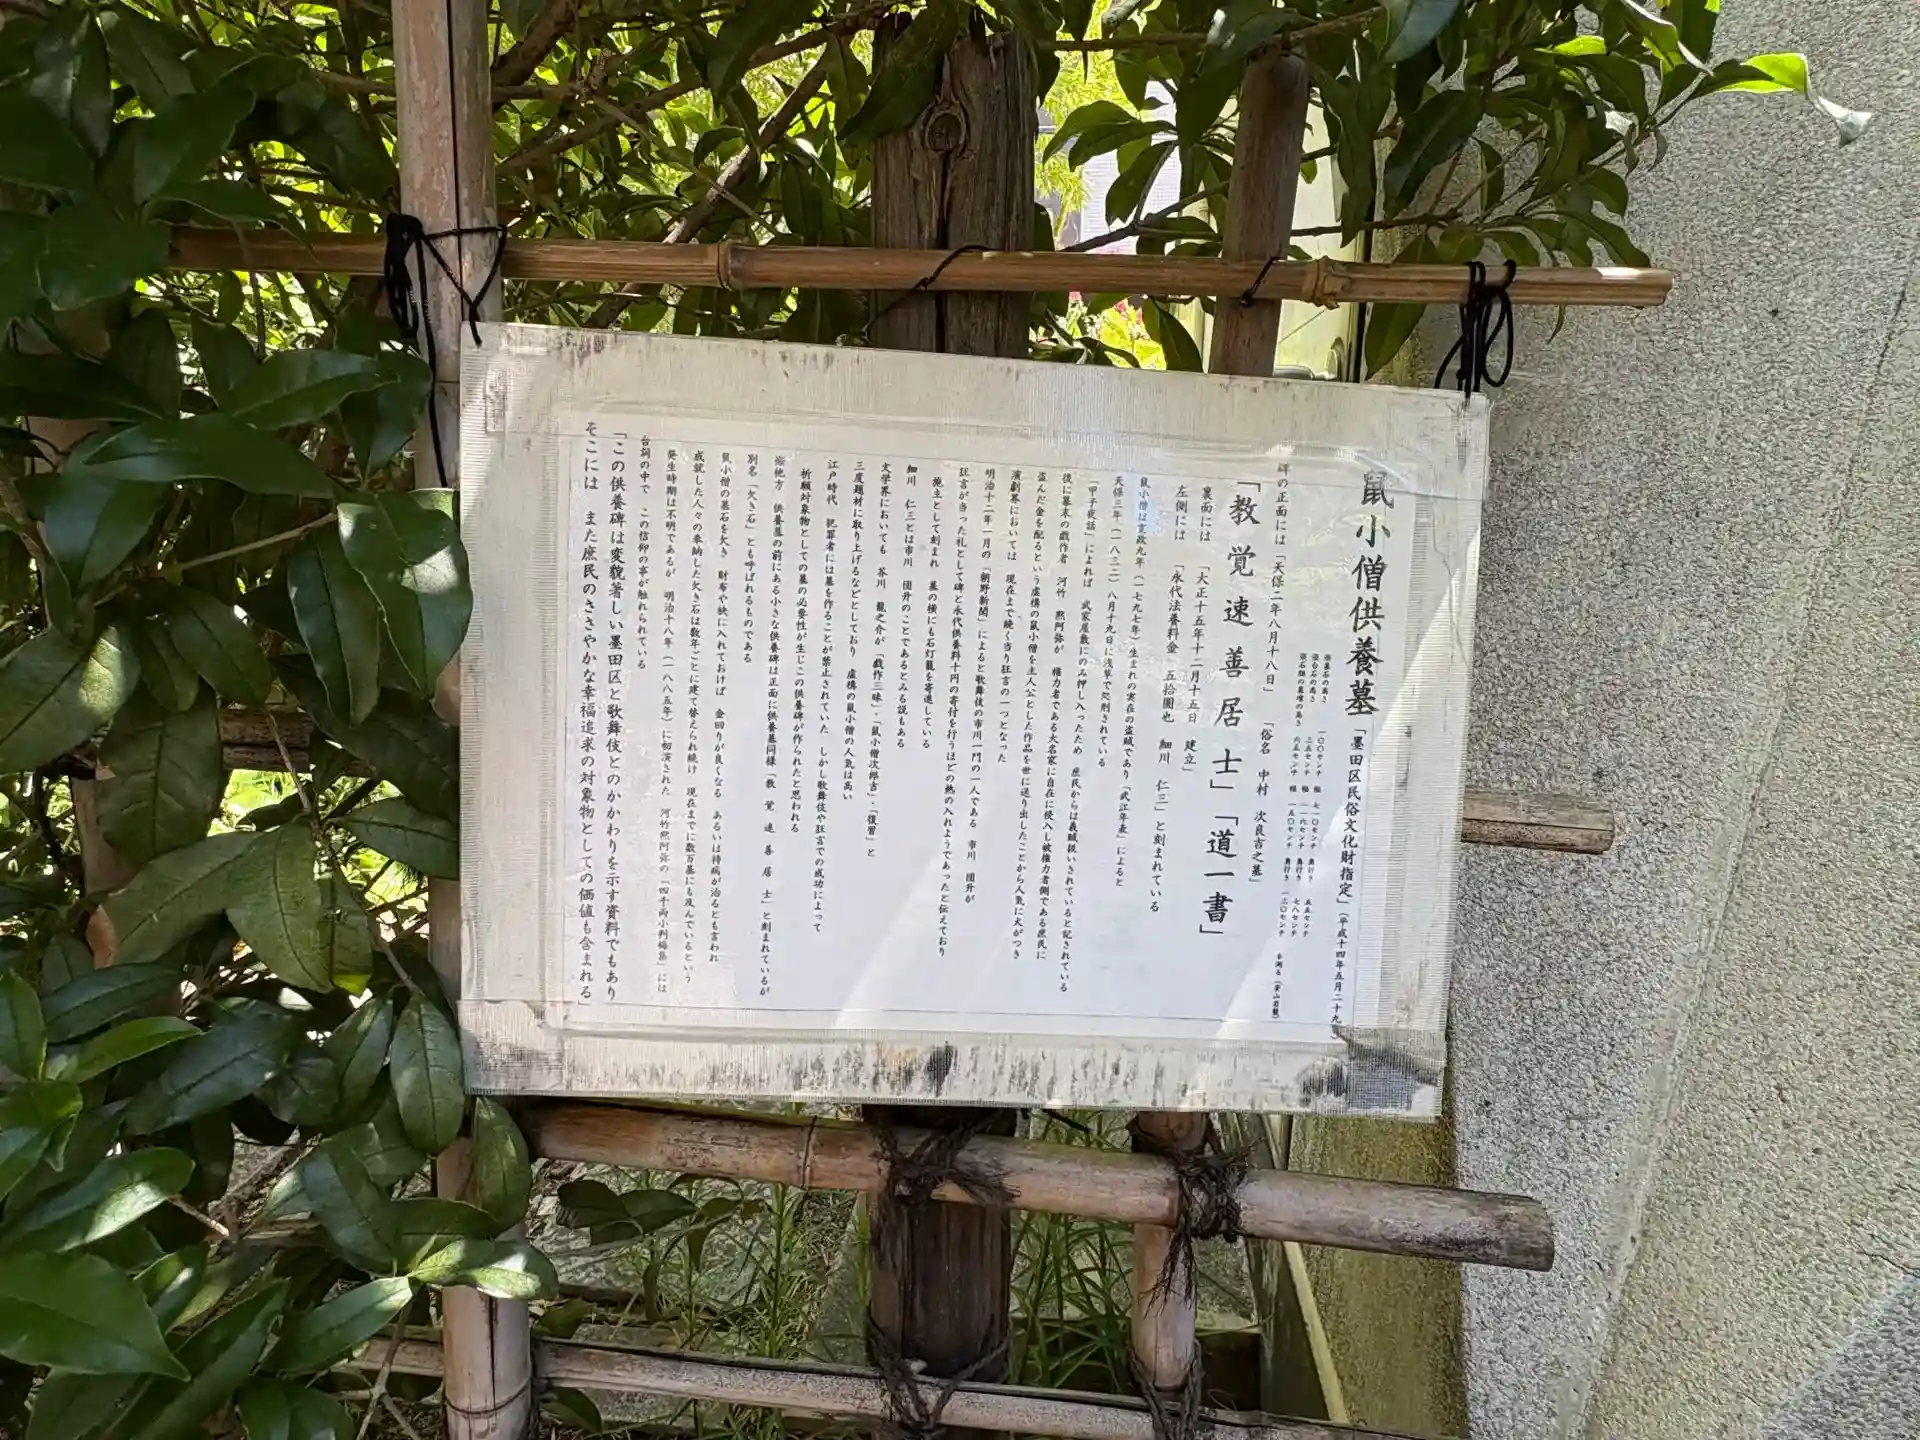 鼠小僧供養墓「墨田区民俗文化財指定」(平成十四年五月二十九
※墓石の高さ 一〇〇センチ 幅 七一〇センチ 奥行き 五五センチ
※台石の高さ 三五センチ 幅 一一六センチ 奥行き 七八センチ
※石類の墓壇の高さ 六五センチ 幅 一五〇センチ 奥行き 一三〇センチ
碑の正面には「天保二年八月十八日」 「俗名 中村 次良吉之墓」
「教覚速善居士」「道一書」
裏面には 「大正十五年十二月十五日 建立」
左側には 「永代法養料金 五拾圓也 細川 仁三」と刻まれている
鼠小僧は寛政九年(一七九七年)生まれの実在の盗賊であり「武江年表」によると
天保三年(一八三二)八月十九日に浅草で処刑されている
「甲子夜話」によれば 武家屋敷にのみ押し入ったため 庶民からは義賊扱いされていると記されている
後に幕末の戯作者 河竹 黙阿弥が 権力者である大名家に自在に侵入し被権力者側である庶民に
盗んだ金を配るという虚構の鼠小僧を主人公とした作品を世に送り出したことから人気に火がつき
演劇界においては 現在まで続く当り狂言の一つとなった
明治十二年一月の「朝野新聞」によると歌舞伎の市川一門の一人である 市川 団升が
狂言が当った礼として碑と永代供養料十円の寄付を行うほどの熱の入れようであったと伝えており
施主として刻まれ 墓の横にも石灯籠を寄進している
細川 仁三とは市川 団升のことであるとみる説もある
文学界においても 芥川 龍之介が「戯作三昧」・「鼠小僧次郎吉」・「復讐」と
三度題材に取り上げるなどとしており 虚構の鼠小僧の人気は高い
江戸時代 犯罪者には墓を作ることが禁止されていた しかし歌舞伎や狂言での成功によって
祈願対象物としての墓の必要性が生じこの供養碑が作られたと思われる
猶他方 供養墓の前にある小さな供養碑は正面に供養墓同様「教 覚 速 善 居 士」と刻まれているが
別名「欠き石」とも呼ばれるものである
鼠小僧の墓石を欠き 財布や袂に入れておけば 金回りが良くなる あるいは持病が治るとも言われ
成就した人々の奉納した欠き石は数年ごとに建て替えられ続け 現在までに数百基にも及んでいるという
発生時期は不明であるが 明治十八年(一八八五年)に初演された 河竹黙阿弥の「四千両小判梅葉」には
台詞の中で この信仰の事が触れられている
「この供養碑は変貌著しい墨田区と歌舞伎とのかかわりを示す資料でもあり
そこには また庶民のささやかな幸福追求の対象物としての価値も含まれる」